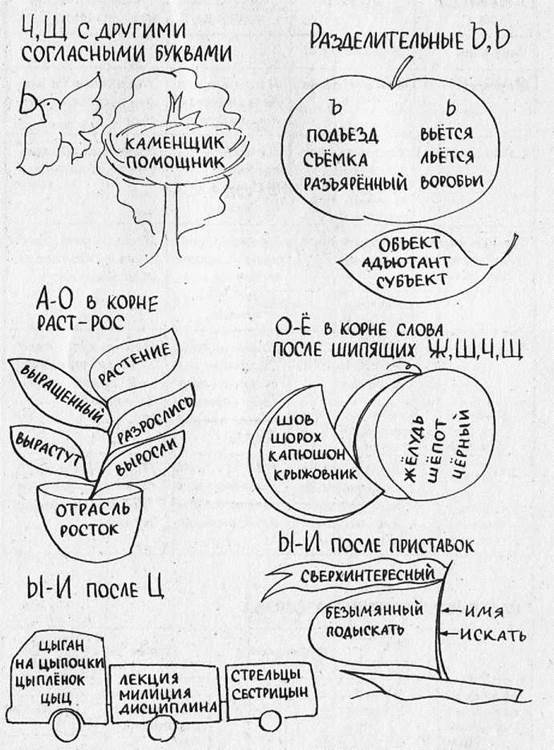 Ч, Щ С ДРУГИМИ
СОГЛАСНЫМИ БУКВАМИ
Ь
КАМЕНЩИК
ПОМОЩНИК
РАЗДЕЛИТЕЛЬНЫЕ Ъ, Ь
Ъ
ПОДЪЕЗД
СЪЁМКА
РАЗЪЯРЁННЫЙ
Ь
ВЬЁТСЯ
ЛЬЁТСЯ
ВОРОБЬИ
ОБЪЕКТ
АДЪЮТАНТ
СУБЪЕКТ
А-О В КОРНЕ
РАСТ-РОС
РАСТЕНИЕ
ВЫРАЩЕННЫЙ
РАЗРОСЛИСЬ
ВЫРАСТУТ
ВЫРОСЛИ
ОТРАСЛЬ
РОСТОК
О-Ё В КОРНЕ СЛОВА
ПОСЛЕ ШИПЯЩИХ Ж, Ш, Ч, Щ
ШОВ
ШОРОХ
КАПЮШОН
КРЫЖОВНИК
ЖЁЛУДЬ
ШЁПОТ
ЧЁРНЫЙ
Ы-И ПОСЛЕ Ц
ЦЫГАН
НА ЦЫПОЧКИ
ЦЫПЛЁНОК
ЦЫЦ
ЛЕКЦИЯ
МИЛИЦИЯ
ДИСЦИПЛИНА
СТРЕЛЬЦЫ
СЕСТРИЦЫН
Ы-И ПОСЛЕ ПРИСТАВОК
СВЕРХИНТЕРЕСНЫЙ
БЕЗЫМЯННЫЙ
ПОДЫСКАТЬ
ИМЯ
ИСКАТЬ